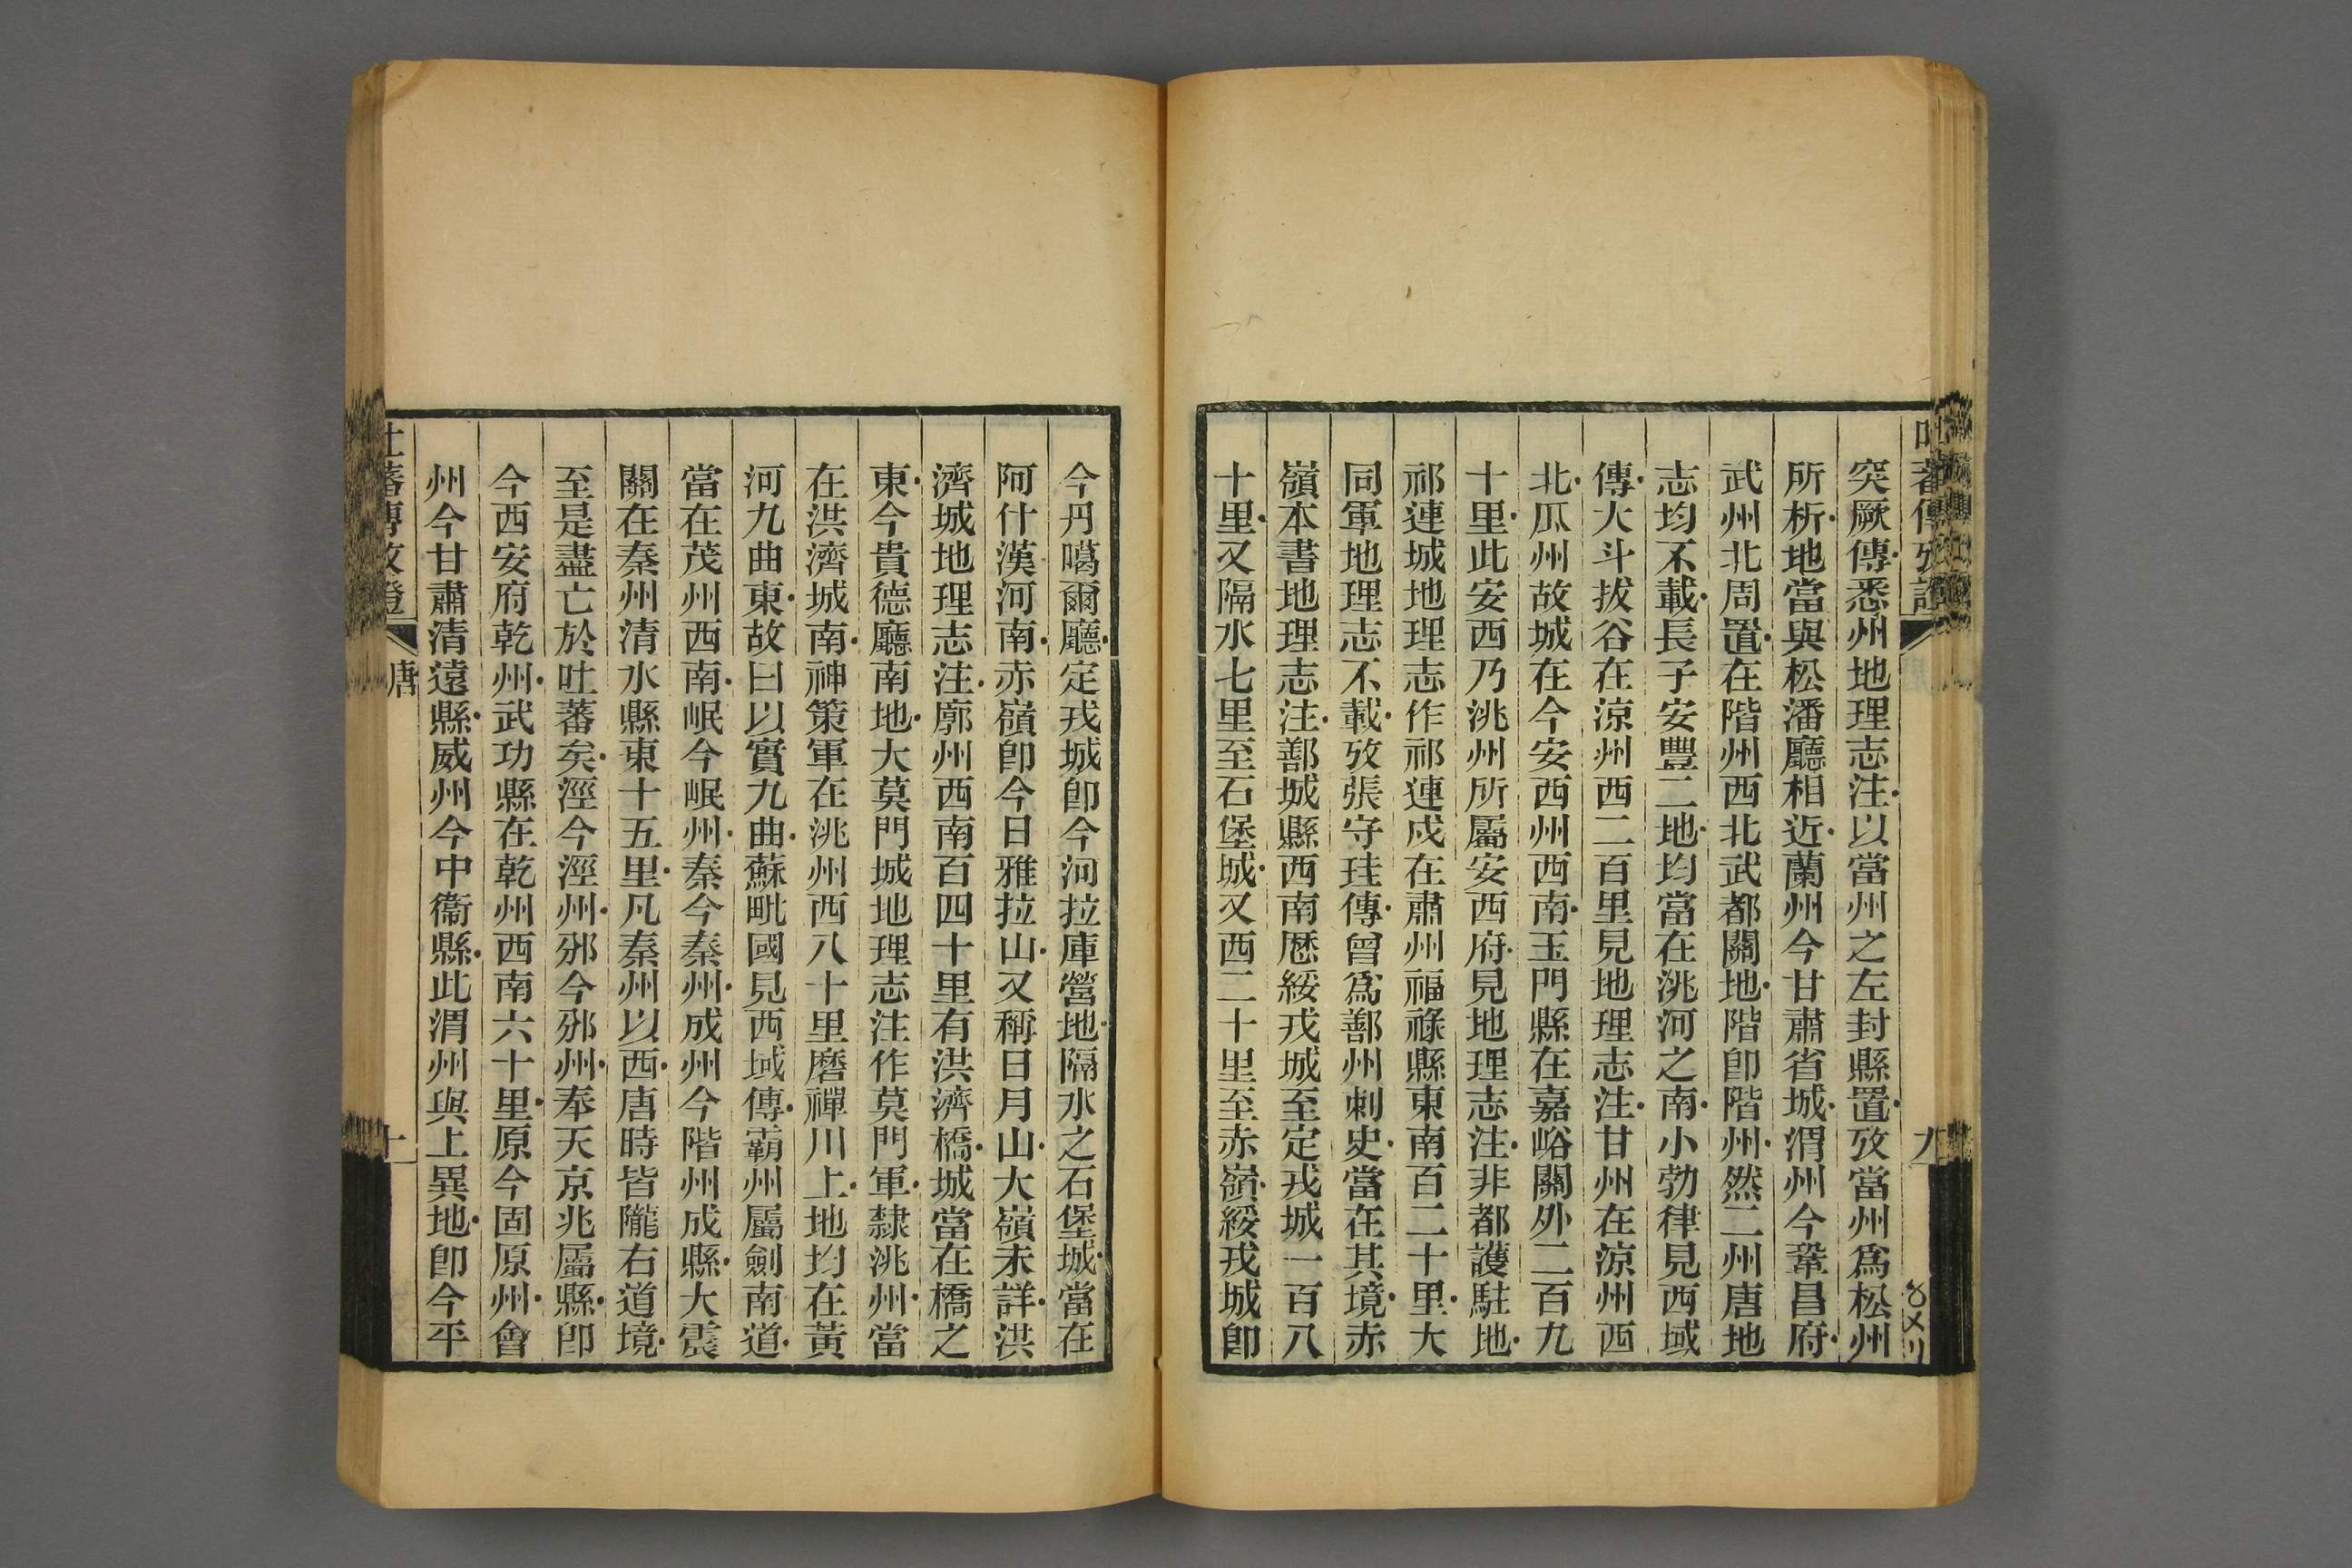 突厥傳悉州地理志注以當州之左封縣置攷當州爲松州
所析地當與松潘廳相近蘭州今甘肅省城渭州今鞏昌府
武州北周置在階州西北武都關地階卽階州然二州唐地
志均不載長子安豐二地均當在洮河之南小勃律見西域
傳大斗拔谷在涼州西二百里見地理志注甘州在涼州西
北瓜州故城在今安西州西南玉門縣在嘉峪關外二百九
十里此安西乃洮州所屬安西府見地理志注非都護駐地
祁連城地理志作祁連戍在肅州福祿縣東南百二十里大
同軍地理志不載攷張守珪傳曾爲鄯州刺史當在其境赤
嶺本書地理志注鄯城縣西南歷綏戎城至定戎城一百八
十里又隔水七里至石堡城又西二十里至赤嶺綏戎城卽
今丹噶爾廳定戎城卽今河拉庫營地隔水之石堡城當在
阿什漢河南赤嶺卽今日雅拉山又稱日月山大嶺未詳洪
濟城地理志注廓州西南百四十里有洪濟橋城當在橋之
東今貴德廳南地大莫門城地理志注作莫門軍隸洮州當
在洪濟城南神策軍在洮州西八十里磨禪川上地均在黃
河九曲東故曰以實九曲蘇毗國見西域傳霸州屬劍南道
當在茂州西南岷今岷州秦今秦州成州今階州成縣大震
關在秦州清水縣東十五里凡秦州以西唐時皆隴右道境
至是盡亡於吐蕃矣涇今涇州邠今邠州奉天京兆屬縣卽
今西安府乾州武功縣在乾州西南六十里原今固原州會
州今甘肅清遠縣威州今中衞縣此渭州與上異地卽今平
吐蕃傳攷證
唐